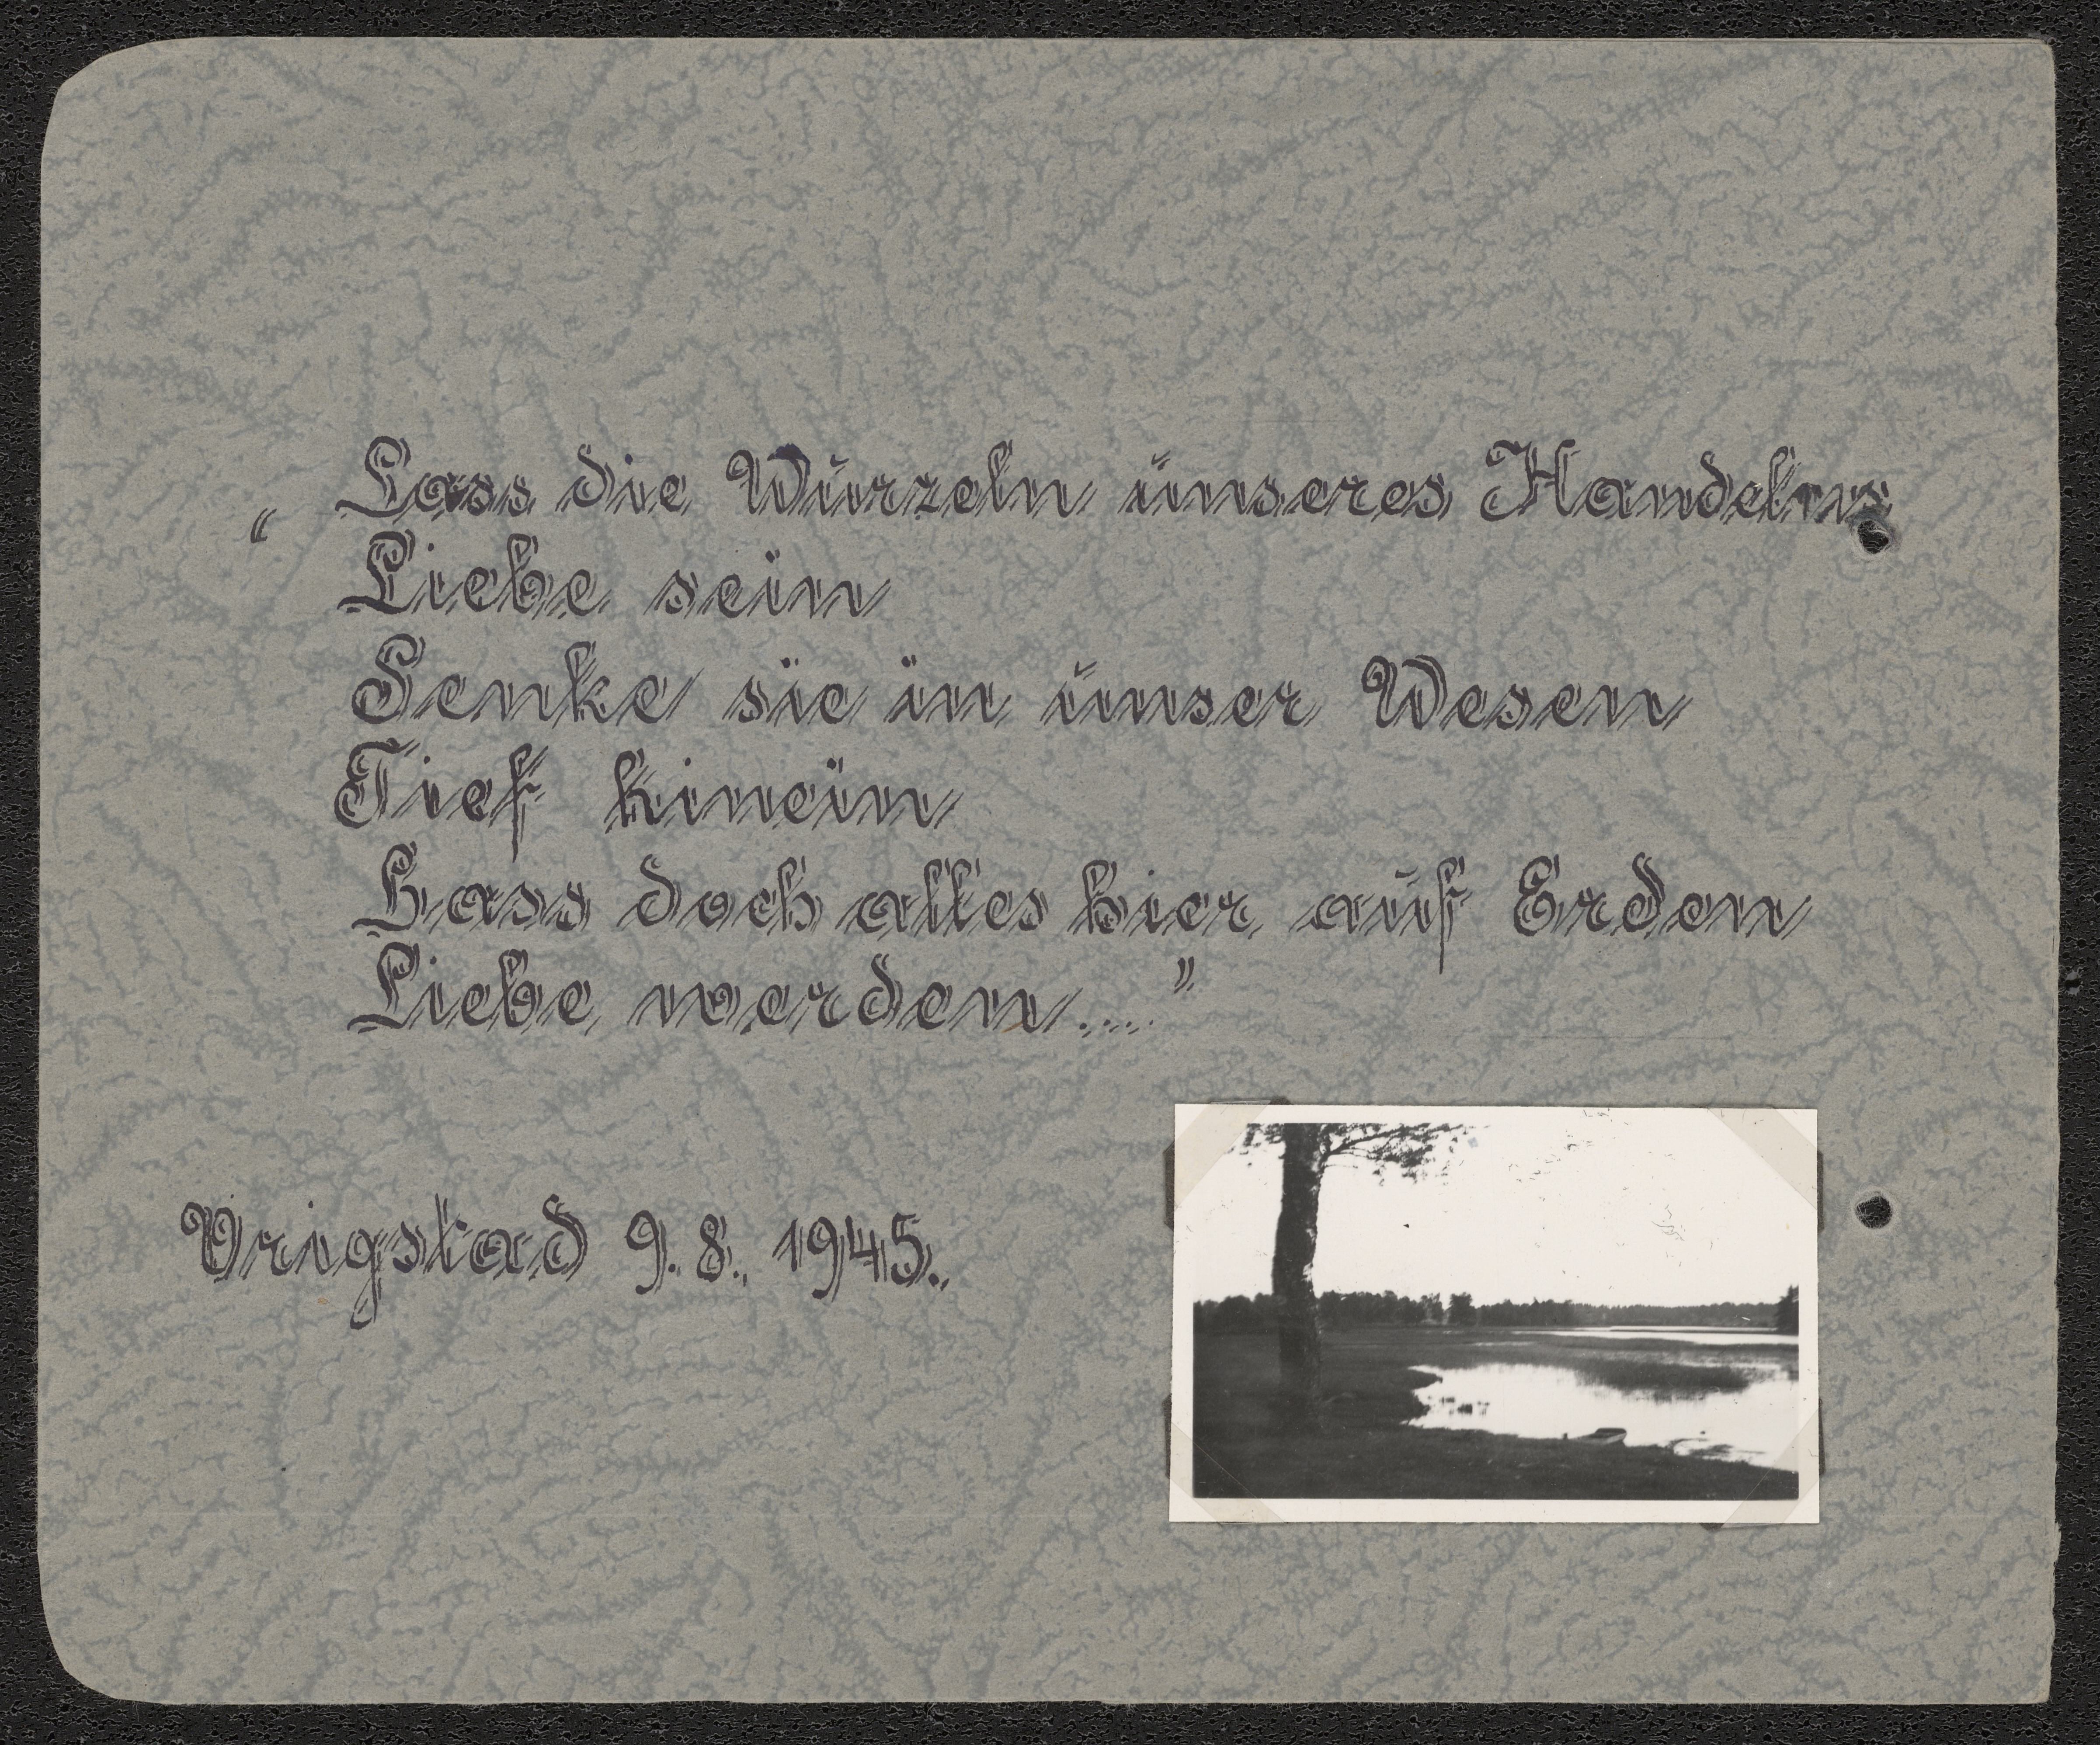 " Lass die Wurzeln unseres Handelns
Liebe sein
Senke sie in unser Wesen
Tief hinein
Lass doch alles hier auf Erden
Liebe werden.... "
Vrigstad 9. 8. 1945.